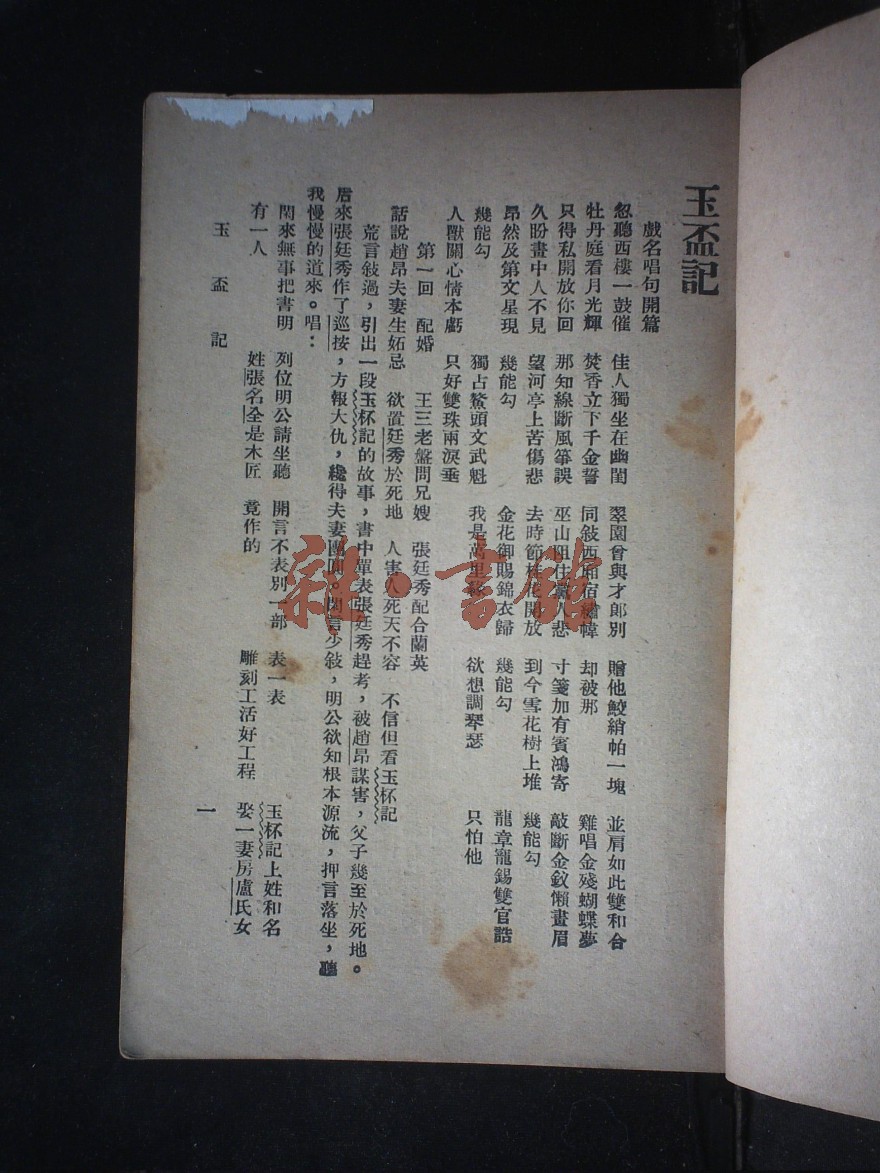 玉盃記
戲名唱句開篇
忽聽西樓一鼓催　佳人獨坐在幽閨　翠園曾與才郎別　贈他鮫綃帕一塊　並肩如此雙和合
牡丹庭看月光輝　焚香立下千金誓　同敍西廂宿繡幃　却被那　雞唱金殘蝴蝶夢
只得私開放你回　那知線斷風箏誤　巫山阻住人悲　寸箋加有賓鴻寄　敲斷金釵懶畫眉
久盼畫中人不見　望河亭上苦傷悲　去時節桂花開放　到今雪花樹上堆　幾能勾
昂然及第文星現　幾能勾　金花御賜錦衣歸　幾能勾　龍章寵錫雙官誥
幾能勾　獨占鰲頭文武魁　我是萬里　欲想調琴瑟　只怕他
人獸關心情本虧　只好雙珠兩淚垂
第一回　配婚　王三老盤問兄嫂　張廷秀配合蘭英
話說趙昂夫妻生妬忌　欲置廷秀於死地　人害人死天不容　不信但看玉杯記
荒言敍過，引出一段玉杯記的故事，書中單表張廷秀趕考，被趙昂謀害，父子幾至於死地。
后來張廷秀作了巡按，方報大仇，纔得夫妻團圓。閑言少敍，明公欲知根本源流，押言落坐，聽
我慢慢的道來。唱：
閑來無事把書明　列位明公請坐聽　開言不表別一部　表一表　玉杯記上姓和名
有一人　姓張名全是木匠　竟作的　雕刻工活好工程　娶一妻房盧氏女
玉盃記　一
雜·書館